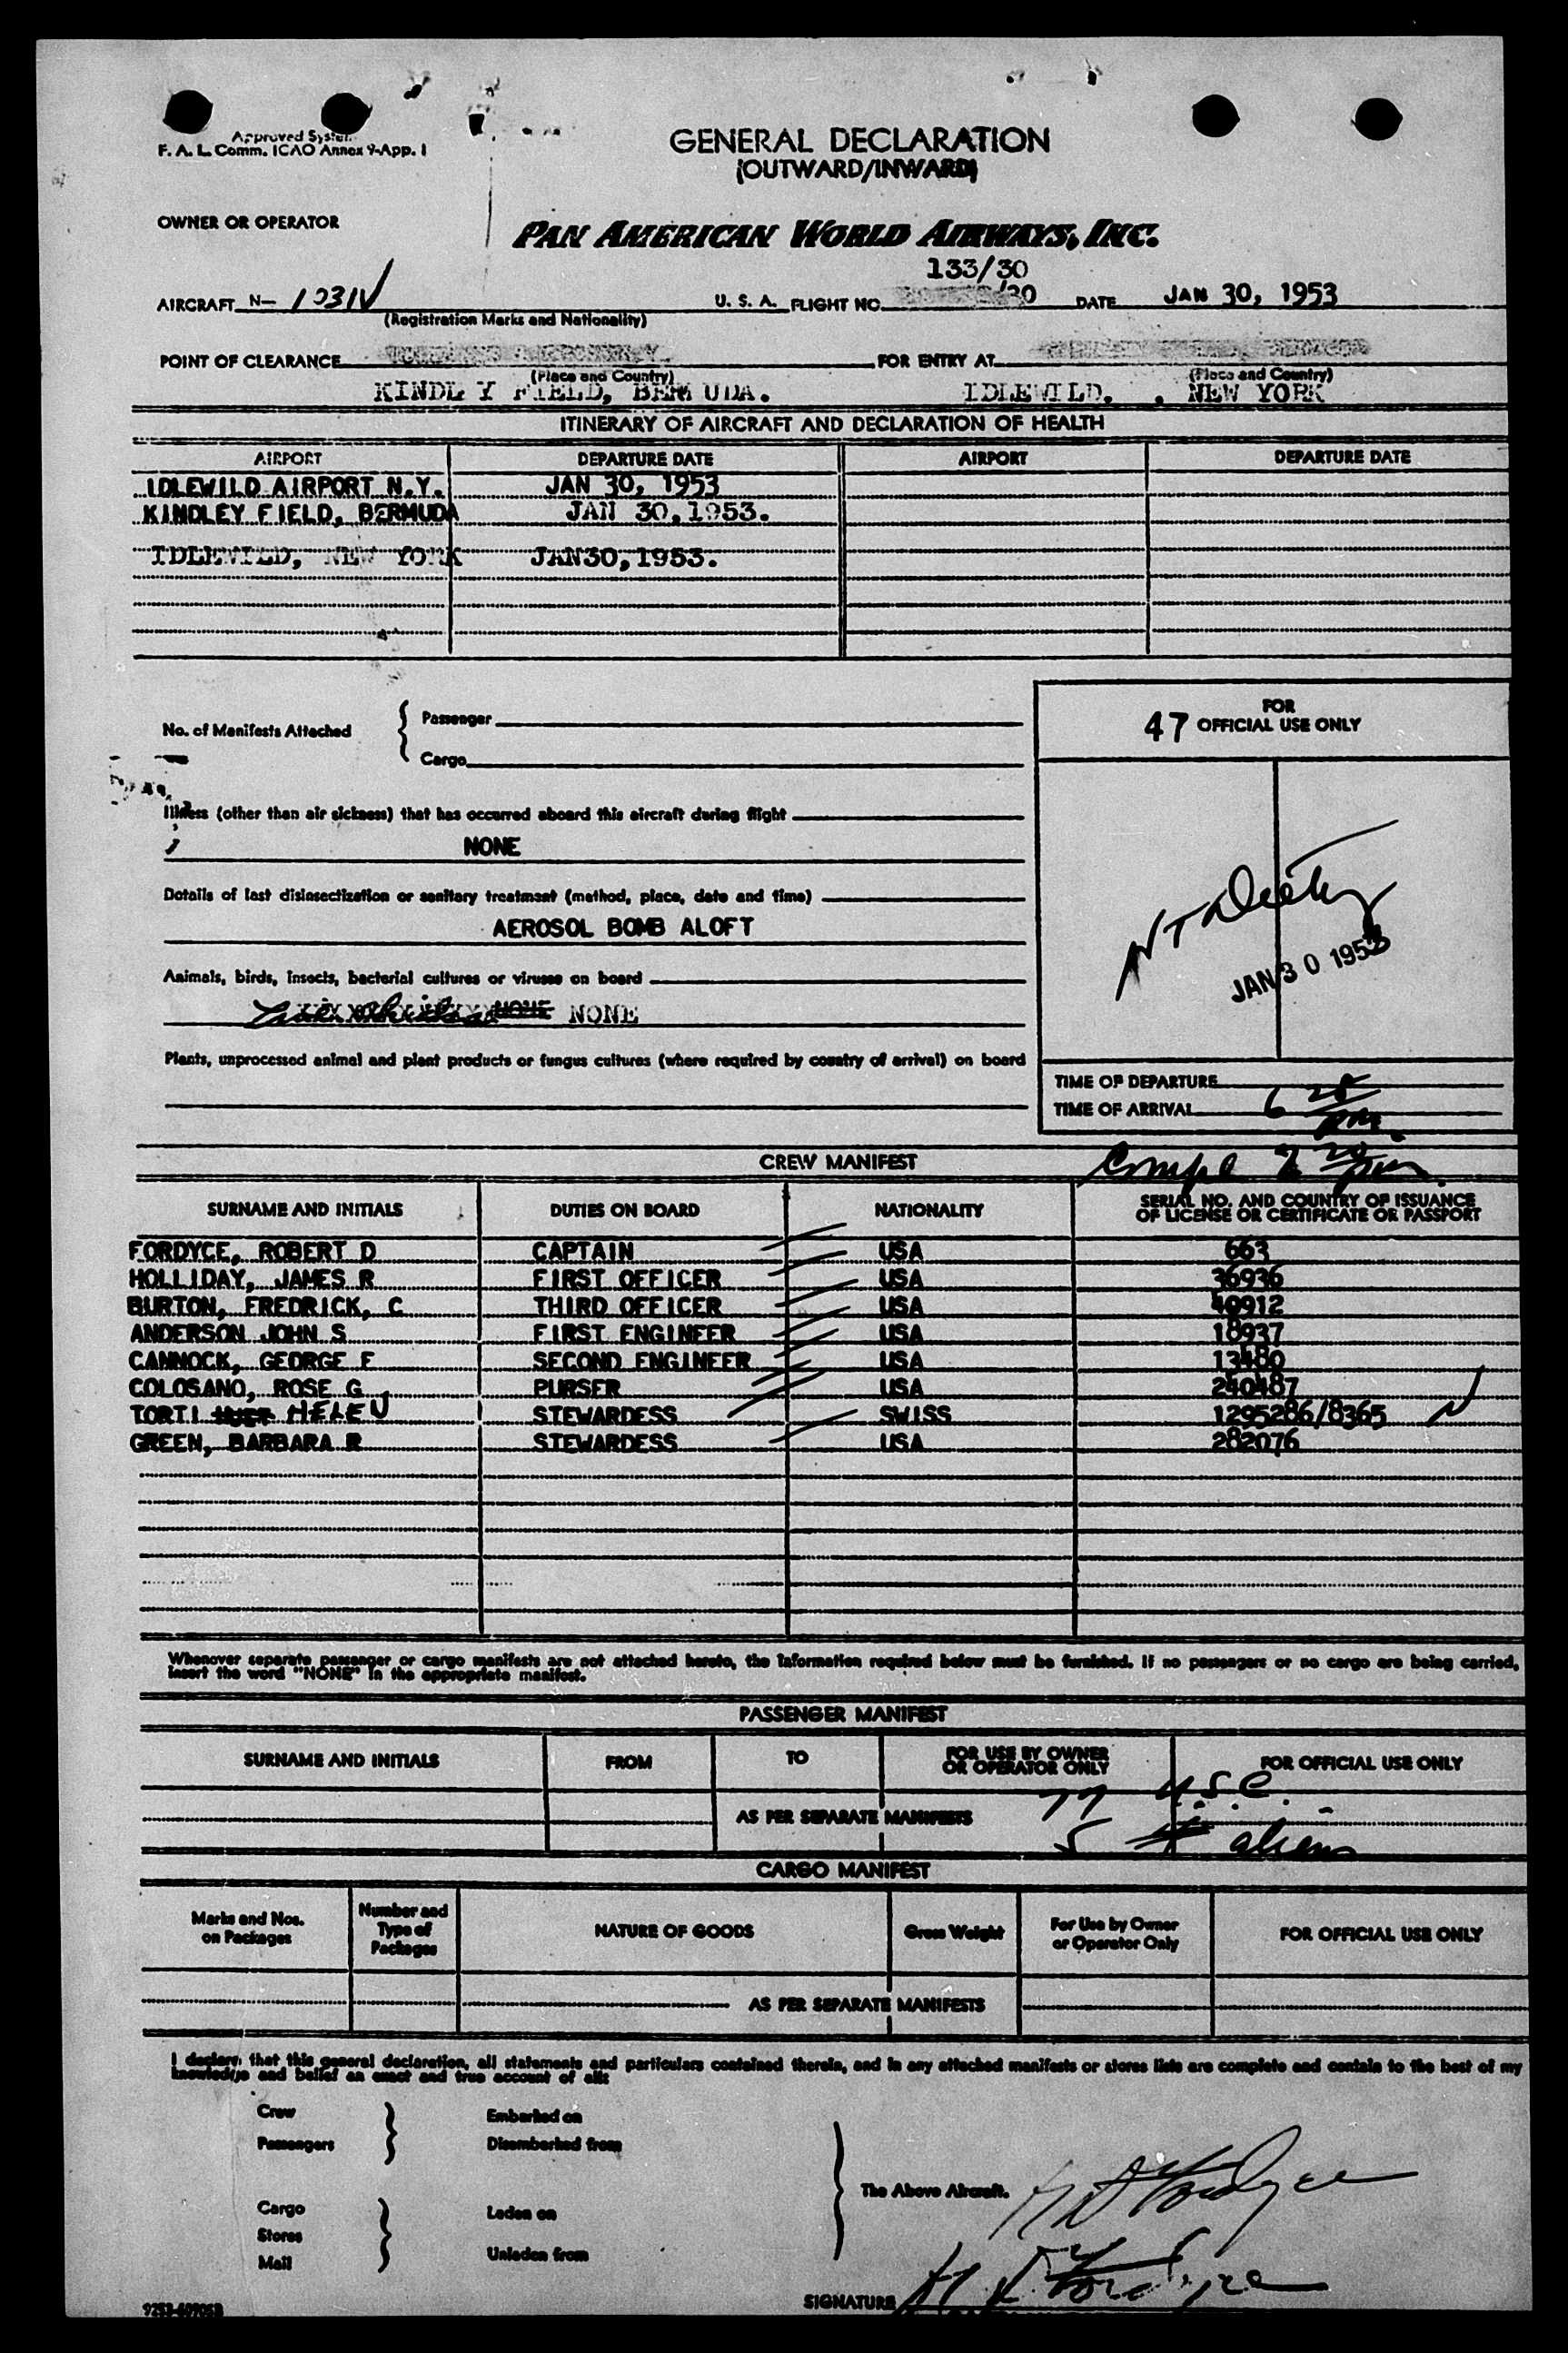 Approved System
F. A. L. Comm. ICAO Annex 9-App. 1
GENERAL DECLARATION
(OUTWARD/INWARD)
OWNER OR OPERATOR
PAN AMERICAN WORLD AIRWAYS, INC.
133/30
AIRCRAFT N- 1031V U. S. A. FLIGHT NO. /30 DATE JAN 30, 1953
(Registration Marks and Nationality)
POINT OF CLEARANCE FOR ENTRY AT
(Place and Country) (Place and Country)
KINDLEY FIELD, BERMUDA. IDLEWILD, , NEW YORK
ITINERARY OF AIRCRAFT AND DECLARATION OF HEALTH
AIRPORT DEPARTURE DATE AIRPORT DEPARTURE DATE
IDLEWILD AIRPORT N.Y. JAN 30, 1953
KINDLEY FIELD, BERMUDA JAN 30,1953.
IDLEWILD, NEW YORK JAN30,1953.
No. of Manifests Attached { Passenger
Cargo
FOR
47 OFFICIAL USE ONLY
Illness (other than air sickness) that has occurred aboard this aircraft during flight
NONE
Details of last disinsectization or sanitary treatment (method, place, date and time)
AEROSOL BOMB ALOFT
JAN 30 1953
Animals, birds, insects, bacterial cultures or viruses on board
NONE NONE
Plants, unprocessed animal and plant products or fungus cultures (where required by country of arrival) on board
TIME OF DEPARTURE
TIME OF ARRIVAL 6 28 PM.
CREW MANIFEST
SURNAME AND INITIALS DUTIES ON BOARD NATIONALITY SERIAL NO. AND COUNTRY OF ISSUANCE
OF LICENSE OR CERTIFICATE OR PASSPORT
FORDYCE, ROBERT D CAPTAIN USA 663
HOLLIDAY, JAMES R FIRST OFFICER USA 36936
BURTON, FREDRICK, C THIRD OFFICER USA 40912
ANDERSON JOHN S FIRST ENGINEER USA 18937
CANNOCK, GEORGE F SECOND ENGINEER USA 13480
COLOSANO, ROSE G PURSER USA 240487
TORTI HELEN STEWARDESS SWISS 1295286/8365
GREEN, BARBARA R STEWARDESS USA 282076
Whenever separate passenger or cargo manifests are not attached hereto, the information required below must be furnished. If no passengers or no cargo are being carried,
insert the word "NONE" in the appropriate manifest.
PASSENGER MANIFEST
SURNAME AND INITIALS FROM TO FOR USE BY OWNER
OR OPERATOR ONLY FOR OFFICIAL USE ONLY
77 U.S.C.
AS PER SEPARATE MANIFESTS
5 aliens
CARGO MANIFEST
Marks and Nos.
on Packages Number and
Type of
Packages NATURE OF GOODS Gross Weight For Use by Owner
or Operator Only FOR OFFICIAL USE ONLY
AS PER SEPARATE MANIFESTS
I declare that this general declaration, all statements and particulars contained therein, and in any attached manifests or stores lists are complete and contain to the best of my
knowledge and belief an exact and true account of all:
Crew Embarked on
Passengers Disembarked from
The Above Aircraft. R D Fordyce
Cargo Laden on
Stores
Mail Unladen from
SIGNATURE R D Fordyce